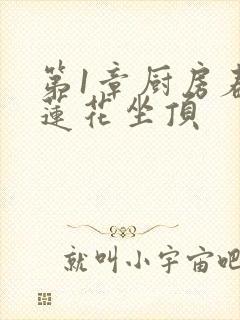 第1章厨房春
蓮花坐頂
就叫小宇宙吧